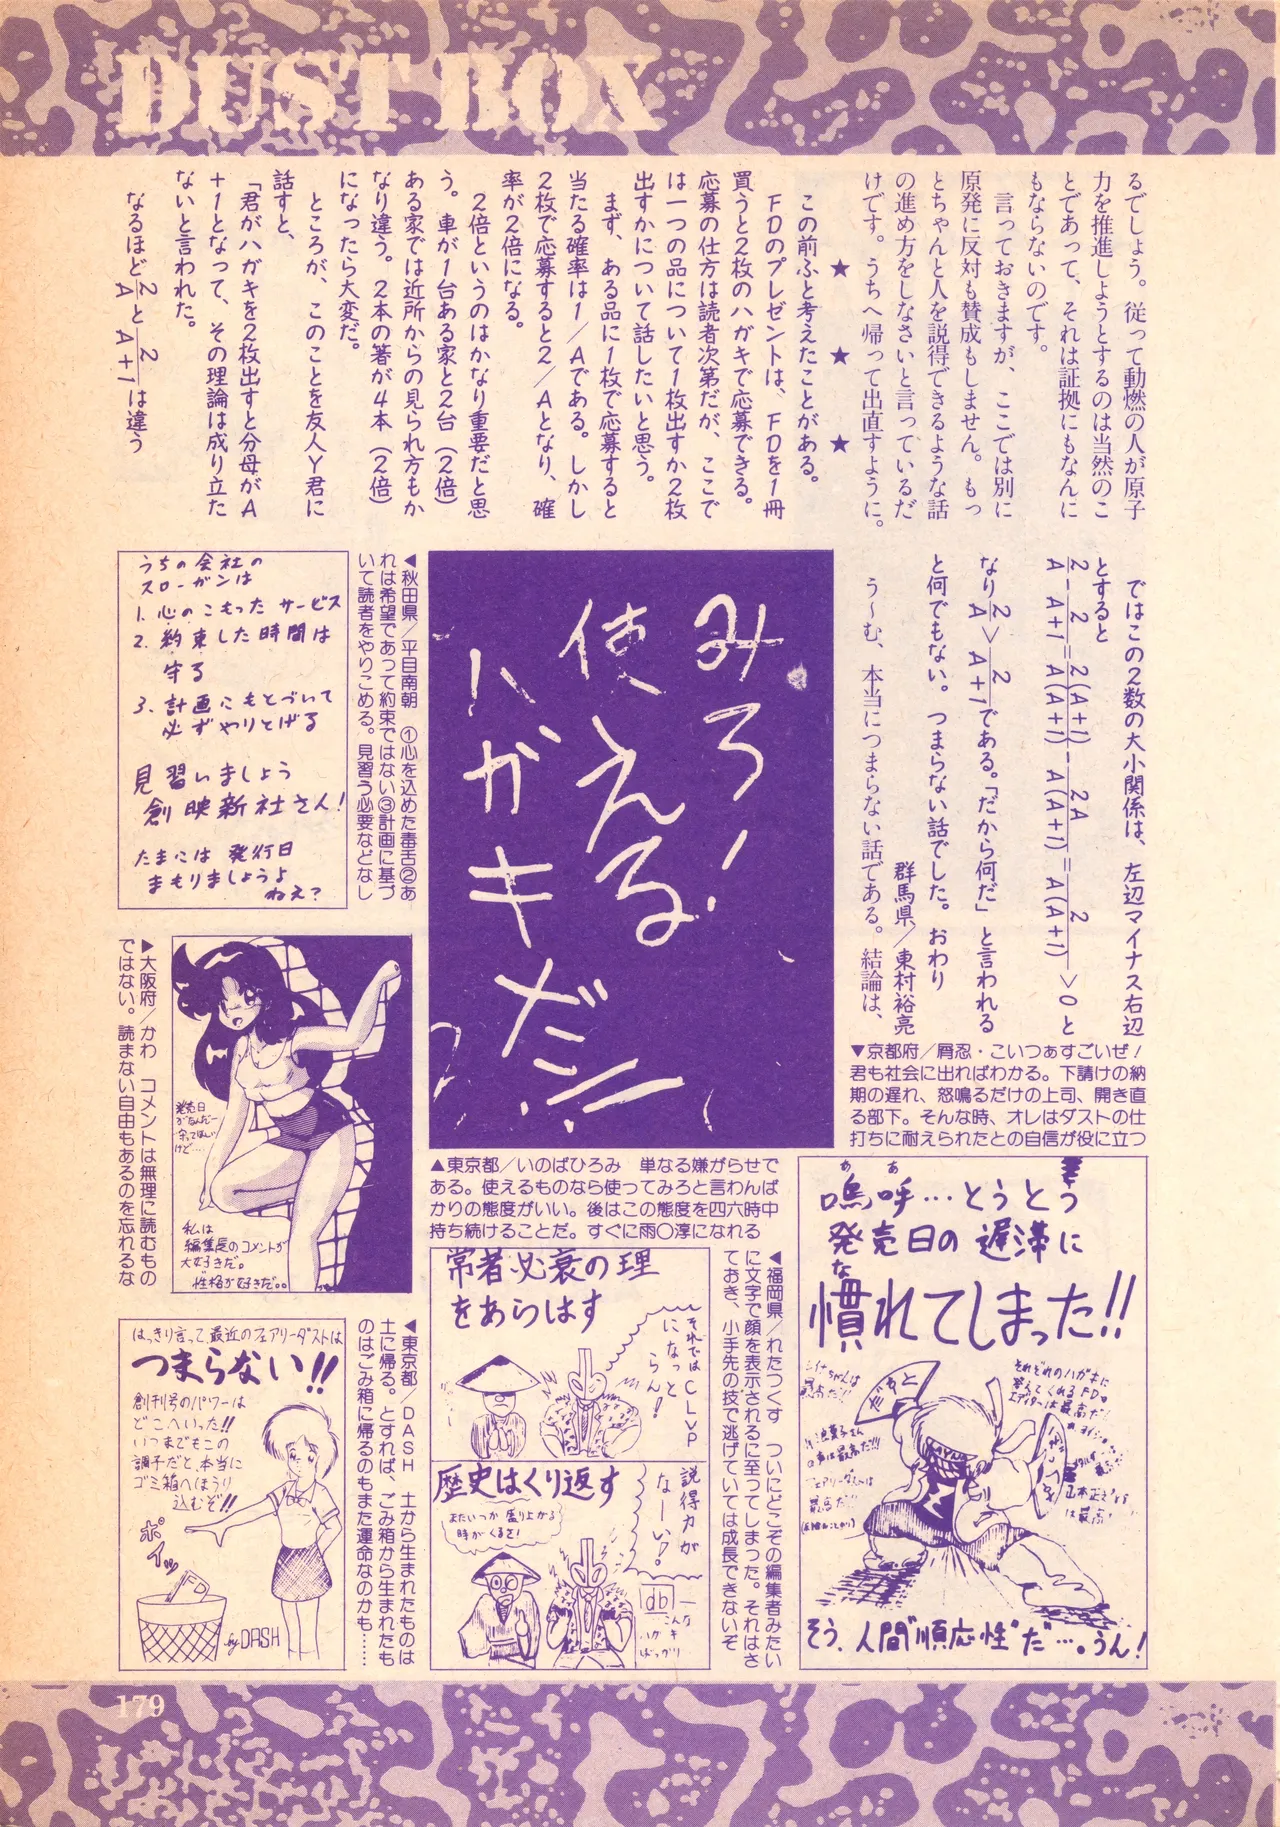 DUST BOX
るでしょう。従って動燃の人が原子
力を推進しようとするのは当然のこ
とであって、それは証拠にもなんに
もならないのです。
言っておきますが、ここでは別に
原発に反対も賛成もしません。もっ
とちゃんと人を説得できるような話
の進め方をしなさいと言っているだ
けです。うちへ帰って出直すように。
★ ★ ★
この前ふと考えたことがある。
FDのプレゼントは、FDを1冊
買うと2枚のハガキで応募できる。
応募の仕方は読者次第だが、ここで
は一つの品について1枚出すか2枚
出すかについて話したいと思う。
まず、ある品に1枚で応募すると
当たる確率は1/Aである。しかし
2枚で応募すると2/Aとなり、確
率が2倍になる。
2倍というのはかなり重要だと思
う。車が1台ある家と2台(2倍)
ある家では近所からの見られ方もか
なり違う。2本の箸が4本(2倍)
になったら大変だ。
ところが、このことを友人Y君に
話すと、
「君がハガキを2枚出すと分母がA
+1となって、その理論は成り立た
ないと言われた。
なるほど2/Aと2/A+1は違う
ではこの2数の大小関係は、左辺マイナス右辺
とすると
2/A-2/A+1=2(A+1)/A(A+1)-2A/A(A+1)=2/A(A+1)>0と
なり2/A>2/A+1である。「だから何だ」と言われる
と何でもない。つまらない話でした。おわり
群馬県/東村裕亮
う〜む、本当につまらない話である。結論は、
▼京都府/屑忍・こいつぁすごいぜ!
君も社会に出ればわかる。下請けの納
期の遅れ、怒鳴るだけの上司、開き直
る部下。そんな時、オレはダストの仕
打ちに耐えられたとの自信が役に立つ
嗚呼…とうとう
ああ
発売日の遅滞に
慣れてしまった!!
な
それぞれのハガキに
答えてくれるFDの
エディターは最高だ!
だすと
最高だ!!
そう、人間"順応性"だ"…。うん!
みろ!
使える
ハガキだ!!
▲東京都/いのばひろみ 単なる嫌がらせで
ある。使えるものなら使ってみろと言わんば
かりの態度がいい。後はこの態度を四六時中
持ち続けることだ。すぐに雨〇淳になれる
◀秋田県/平目南朝 ①心を込めた毒舌②あ
れは希望であって約束ではない③計画に基づ
いて読者をやりこめる。見習う必要などなし
うちの会社の
スローガンは
1. 心のこもった サービス
2. 約束した時間は
守る
3. 計画にもとづいて
必ずやりとげる
見習いましょう
創映新社さん!
たまには 発行日
まもりましょうよ
ねえ?
▶大阪府/かわ コメントは無理に読むもの
ではない。読まない自由もあるのを忘れるな
発売日
がなんだー
守ってほしい
けど…
私は
編集長のコメントが
大好きだ。
性格が好きだ。。
◀福岡県/れたつくす ついにどこぞの編集者みたい
に文字で顔を表示されるに至ってしまった。それはさ
ておき、小手先の技で逃げていては成長できないぞ
常者必衰の理
をあらはす
それでは CLVP
になっと
らん!
歴史はくり返す
またいつか 盛り上がる
時がくるさ!
説得力が
なーい!
db
こんな
ハガキ
ばっかり
◀東京都/DASH 土から生まれたものは
土に帰る。とすれば、ごみ箱から生まれたも
のはごみ箱に帰るのもまた運命なのかも……
はっきり言って、最近のフェアリーダストは
つまらない!!
創刊号のパワーは
どこへいった!!
いつまでもこの
調子だと、本当に
ゴミ箱へほうり
込むぞ!!
ポイッ
FD
by DASH
179